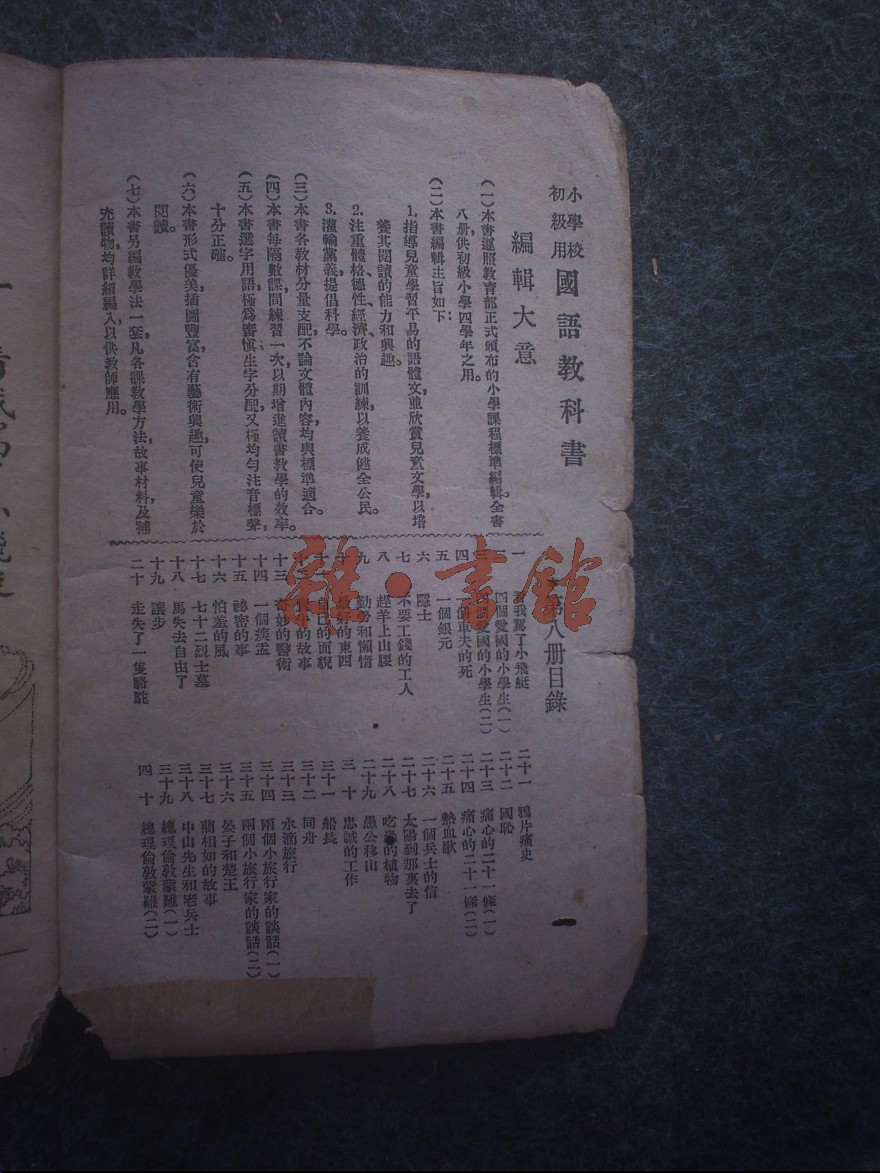 小學校
初級用
國語教科書
編輯大意
(一)本書遵照教育部正式頒布的小學課程標準編輯。全書
八册,供初級小學四學年之用。
(二)本書編輯主旨如下:
1.指導兒童學習平易的語體文,並欣賞兒童文學,以培
養其閱讀的能力和興趣。
2.注重體格、德性、經濟、政治的訓練,以養成健全公民。
3.灌輸黨義,提倡科學。
(三)本書各教材分量支配,不論文體內容,均與標準適合。
(四)本書每隔數課,間練習一次,以期增進讀書教學的效率。
(五)本書選字用語,極爲審愼,生字分配,又極均勻,注音標聲,
十分正確。
(六)本書形式優美,插圖豐富,含有藝術興趣,可使兒童樂於
閱讀。
(七)本書另編教學法一套,凡各課教學方法,故事材料,及補
充讀物,均詳細編入,以供教師應用。
第八册目錄
一 我駕了小飛艇
二 四個愛國的小學生(一)
三 四個愛國的小學生(二)
四 一個車夫的死
五 一個銀元
六 隱士
七 不要工錢的工人
八 趕羊上山腰
九 勤勞和懶惰
十 最好的東西
十一 自己的面貌
十二 的故事
十三 奇妙的醫術
十四 一個痰盂
十五 祕密的事
十六 怕羞的風
十七 七十二烈士墓
十八 馬失去自由了
十九 讓步
二十 走失了一隻駱駝
二十一 鴉片痛史
二十二 國恥
二十三 痛心的二十一條(一)
二十四 痛心的二十一條(二)
二十五 熱血歌
二十六 一個兵士的信
二十七 太陽到那裏去了
二十八 吃蟲的植物
二十九 愚公移山
三十 忠誠的工作
三十一 船長
三十二 同舟
三十三 水滴旅行
三十四 兩個小旅行家的談話(一)
三十五 兩個小旅行家的談話(二)
三十六 晏子和楚王
三十七 藺相如的故事
三十八 中山先生和老兵士
三十九 總理倫敦蒙難(一)
四十 總理倫敦蒙難(二)
雜·書館